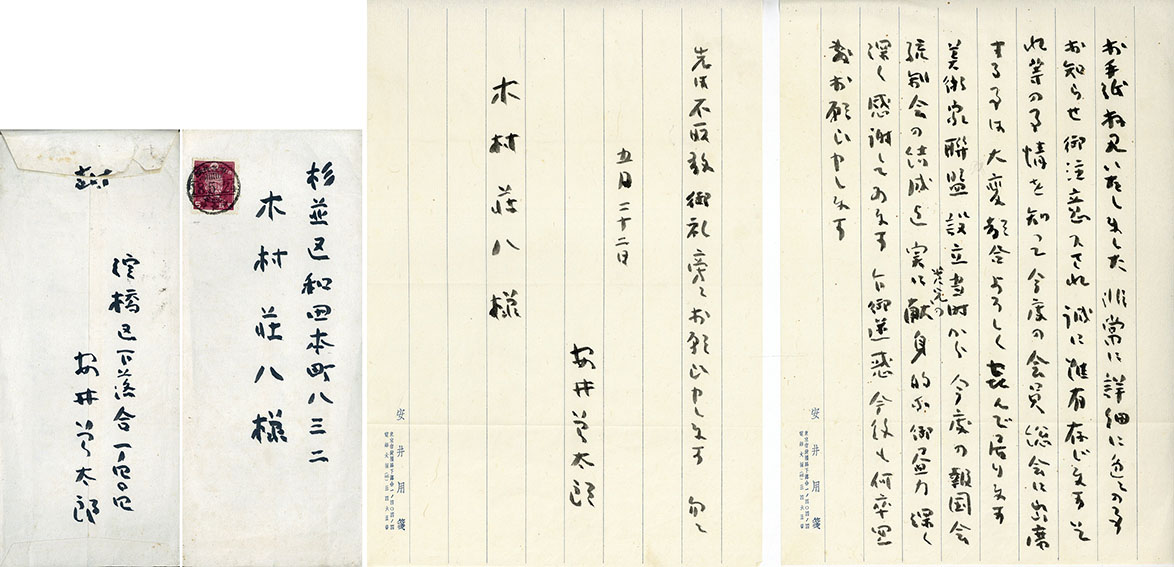 お手紙拝見いたしました 非常に詳細に色々の事
お知らせ御注意下され 誠に難有存じます そ
れ等の事情を知つて今度の会員総会に出席
する事は大変都合よろしく 喜んで居ります
美術家聯盟設立当時から 今度の報国会
結成迄 実に献身的な御尽力 深く
深く感謝してゐます 御迷惑 今後も何卒
お願ひ申します
先は不取敢御礼旁々お願ひ申します 匆々
五月二十二日
安井曽太郎
木村荘八様
安井用箋
杉並区和田本町八三二
木村荘八様
淀橋区下落合
安井曽太郎